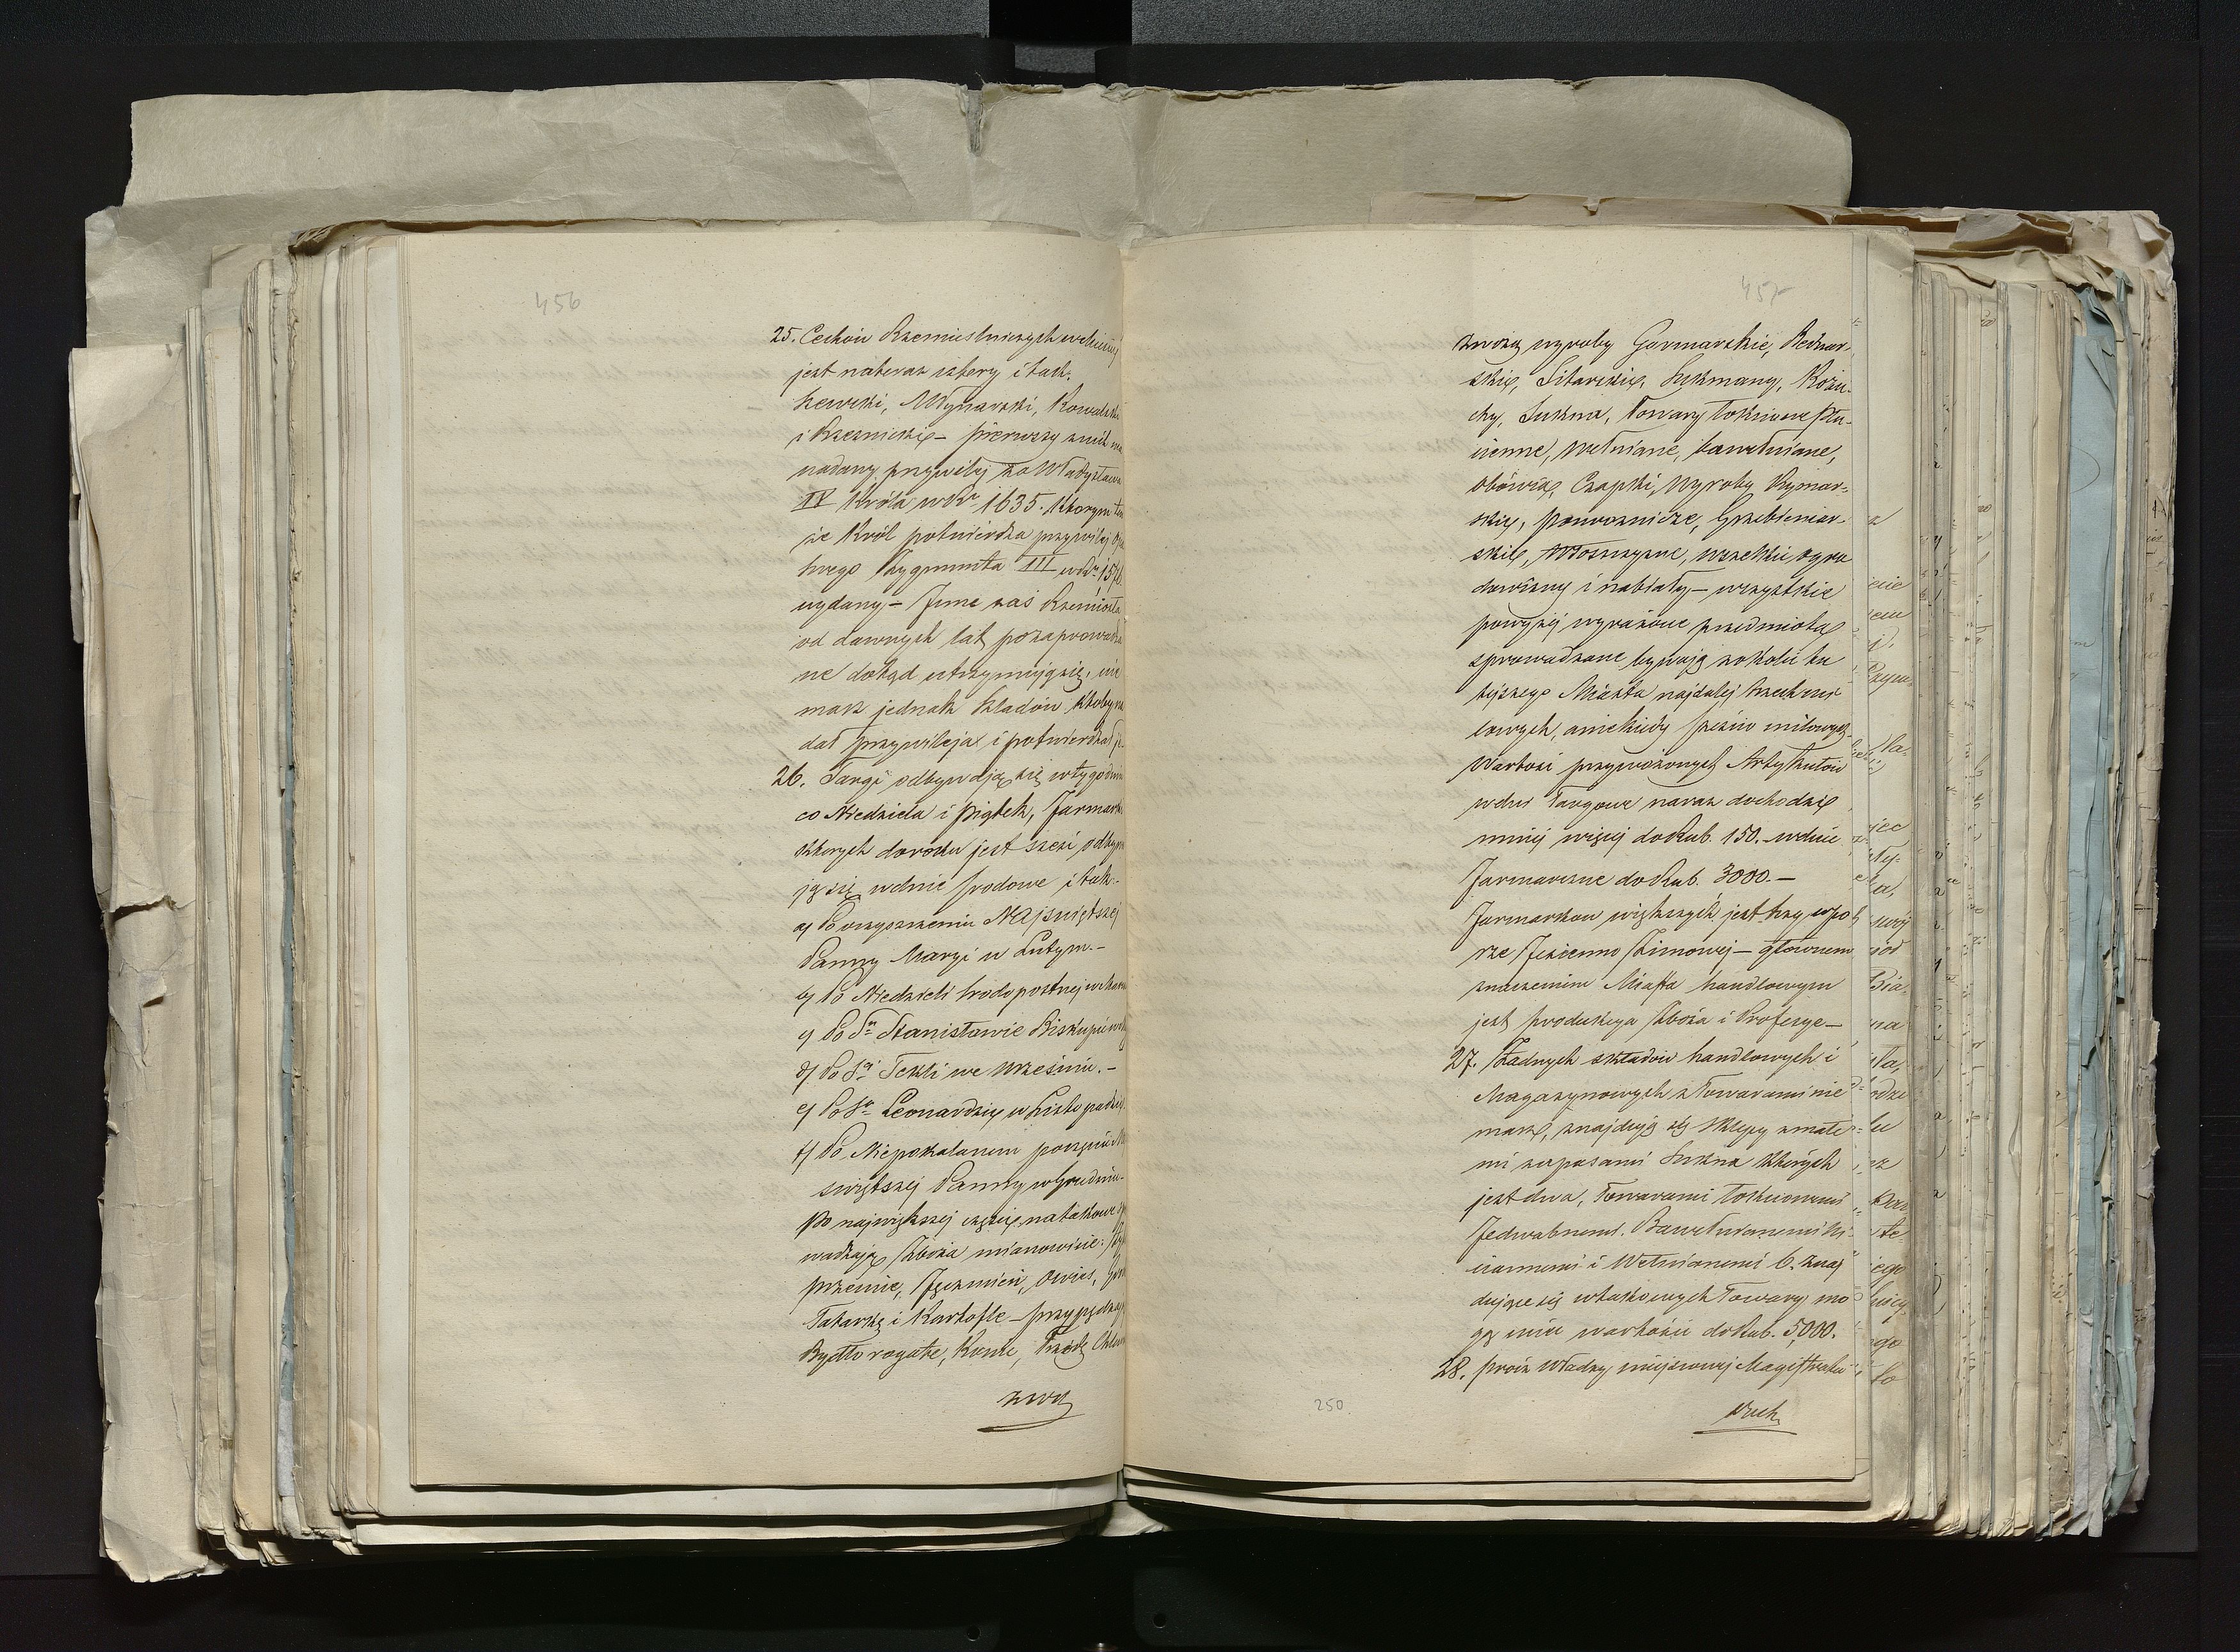 456
25. Cechów Rzemieslniczych w
jest nateraz cztery i tak.
Szewcki, Młynarski, Kowalski
i Rzeznickie – pierwszy z nich ma
nadany przywilej za Władysława
IV Króla w Rr 1635. którym ten
że Król potwierdza przywilej
Zygmunta III w Rr
wydany – Inne zaś Rzemiosła
od dawnych lat pozaprowadzo
ne dotąd utrzymują się, nie
masz jednak śladów ktoby na
dał przywileja i potwierdzał je
26. Targi odbywają się w tygodniu
co Niedziela i Piątek, Jarmarki
których do roku jest sześć odbywa
ją się w dnie środowe i tak:
a) Po oczyszczeniu Najświętszej
Panny Maryi w Lutym. –
b) Po Niedzieli środopostnej w Marcu
c) Po Sm Stanisławie Biskupie w
d) Po Sej Tekli we Wrześniu. –
e) Po Sm Leonardzie w Listopadzie
f) Po Niepokalanem poczęciu
świętszej Panny w Grudniu.
Po największej części na takowe
wadzają Zboża mianowicie:
pszenice, Jęczmień, owies,
Tatarkę i Kartofle – przypędzają
Bydło rogate, Konie, Trzodę
zwo
457
zwożą wyroby Garncarskie, Bednar-
skie, Sitarskie, Sukmany, Kożu-
chy, Sukna, Towary łokciowe płu-
cienne, wełniane, bawełniane,
obówie, Czapki, wyroby Rymar-
skie, powroznicze, Grzebieniar-
skie, Włoszczyzne, wszelkie ogro
dowizny i nabiały – wszystkie
powyżej wyrażone przedmiota
sprowadzane bywają z okolic tu
tejszego Miasta najdalej trzech mi
lowych, a niekiedy sześcio milowych.
Wartość przywożonych Artykułów
w dni Targowe naraz dochodzi
mniej więcej do Rub. 150. w dnie
Jarmarczne do Rub. 3000. –
Jarmarków większych jest trzy w po
rze Jesienno Zimowej – głownem
znaczeniem Miasta handlowym
jest produkcya Zboża i Profesye –
27. Żadnych składów handlowych i
Magazynowych z Towarami nie
masz, znajdują się Sklepy z małe
mi zapasami Sukna których
jest dwa, Towarami łokciowemi
Jedwabnemi. Bawełnianemi
ciannemi i Wełnianemi 6. znaj
dujące się w takowych Towary mo
gą mieć wartości do Rub. 5,000.
28. prócz Władzy miejscowej Magistratu
250